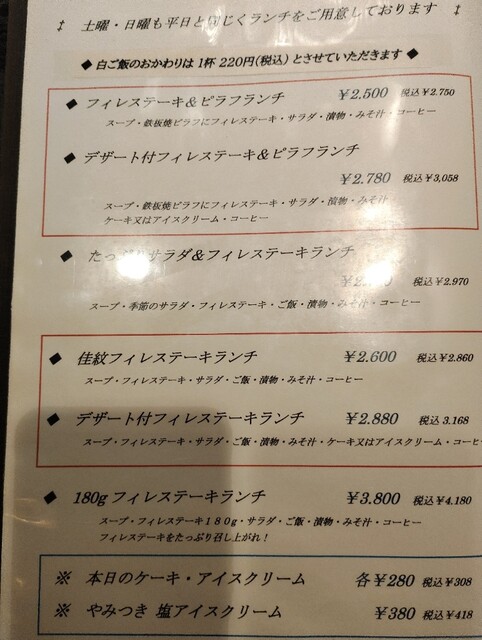 ↕ 土曜・日曜も平日と同じくランチをご用意しております ↕
◆白ご飯のおかわりは 1杯 220円(税込) とさせていただきます◆
◆ フィレステーキ&ピラフランチ ￥2.500 税込￥2.750
スープ・鉄板焼ピラフにフィレステーキ・サラダ・漬物・みそ汁・コーヒー
◆ デザート付フィレステーキ&ピラフランチ
￥2.780 税込￥3,058
スープ・鉄板焼ピラフにフィレステーキ・サラダ・漬物・みそ汁
ケーキ又はアイスクリーム・コーヒー
◆ たっぷりサラダ&フィレステーキランチ
税込￥2.970
スープ・季節のサラダ・フィレステーキ・ご飯・漬物・みそ汁・コーヒー
◆ 佳紋フィレステーキランチ ￥2.600 税込￥2.860
スープ・フィレステーキ・サラダ・ご飯・漬物・みそ汁・コーヒー
◆ デザート付フィレステーキランチ ￥2.880 税込 3.168
スープ・フィレステーキ・サラダ・ご飯・漬物・みそ汁・ケーキ又はアイスクリーム・コーヒ
◆ 180g フィレステーキランチ ￥3.800 税込￥4.180
スープ・フィレステーキ１８０g・サラダ・ご飯・漬物・みそ汁・コーヒー
フィレステーキをたっぷり召し上がれ！
※ 本日のケーキ・アイスクリーム 各￥280 税込￥308
※ やみつき 塩アイスクリーム ￥380 税込￥418